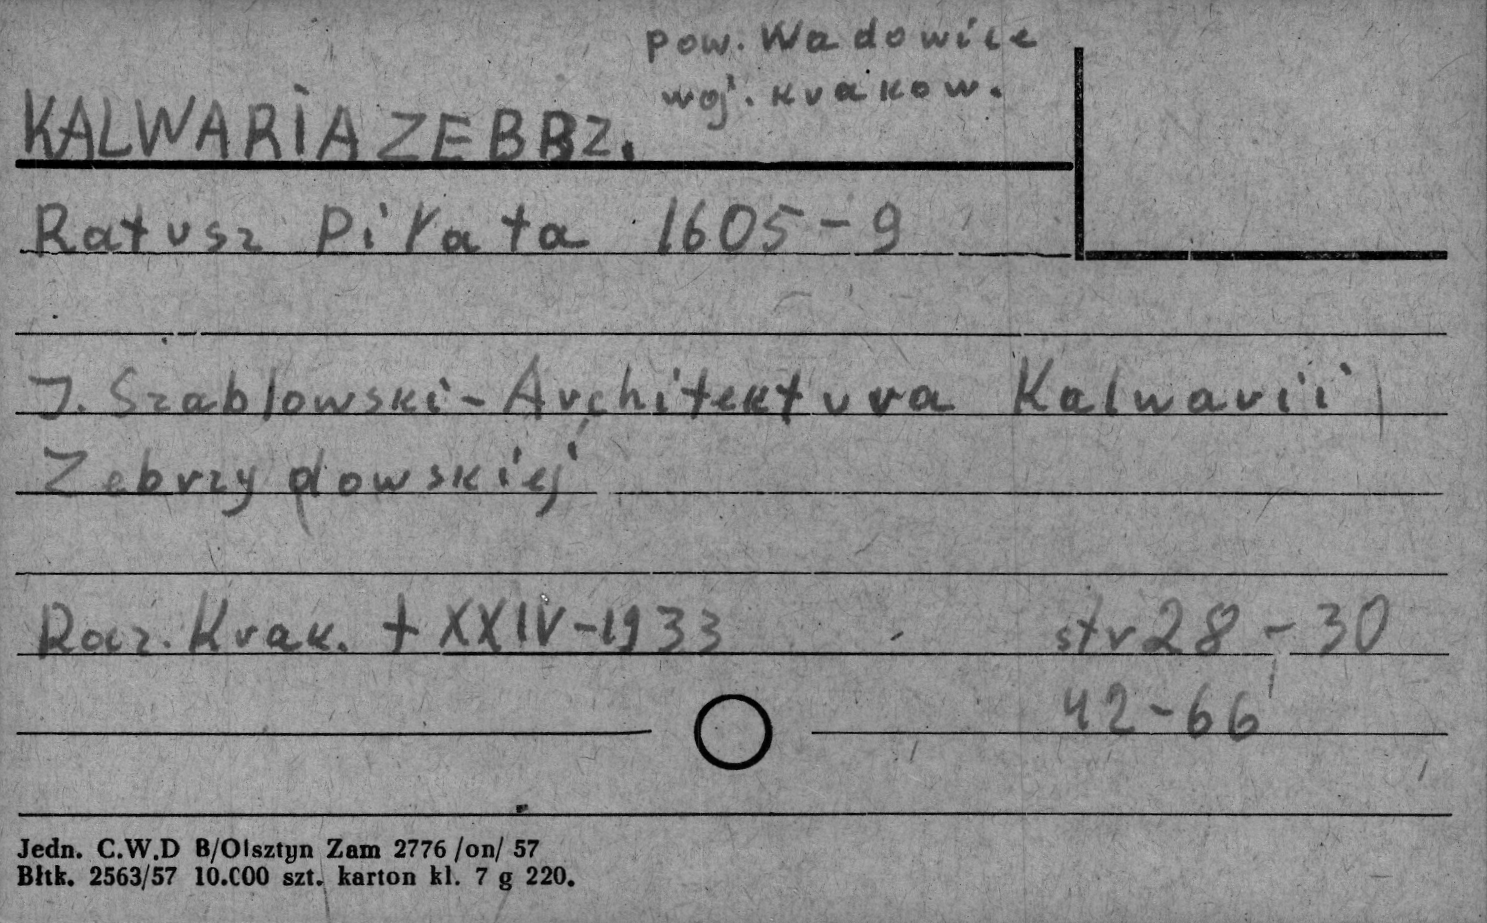 pow. Wadowice
woj. krakow.
KALWARIA ZEBRZ.
Ratusz Piłata 1605-9
J. Szablowski - Architektura Kalwarii
Zebrzydowskiej
Rocz. Krak. t XXIV-1933 str 28-30
42-66
Jedn. C.W.D B/Olsztyn Zam 2776 /on/ 57
Błtk. 2563/57 10.000 szt. karton kl. 7 g 220.